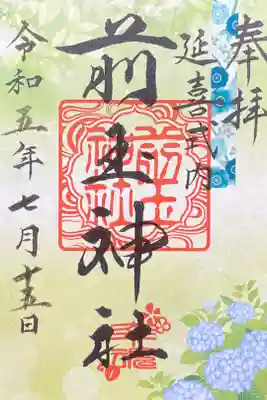 奉拝
延喜式内
前玉神社
令和五年七月十五日
前玉
神社